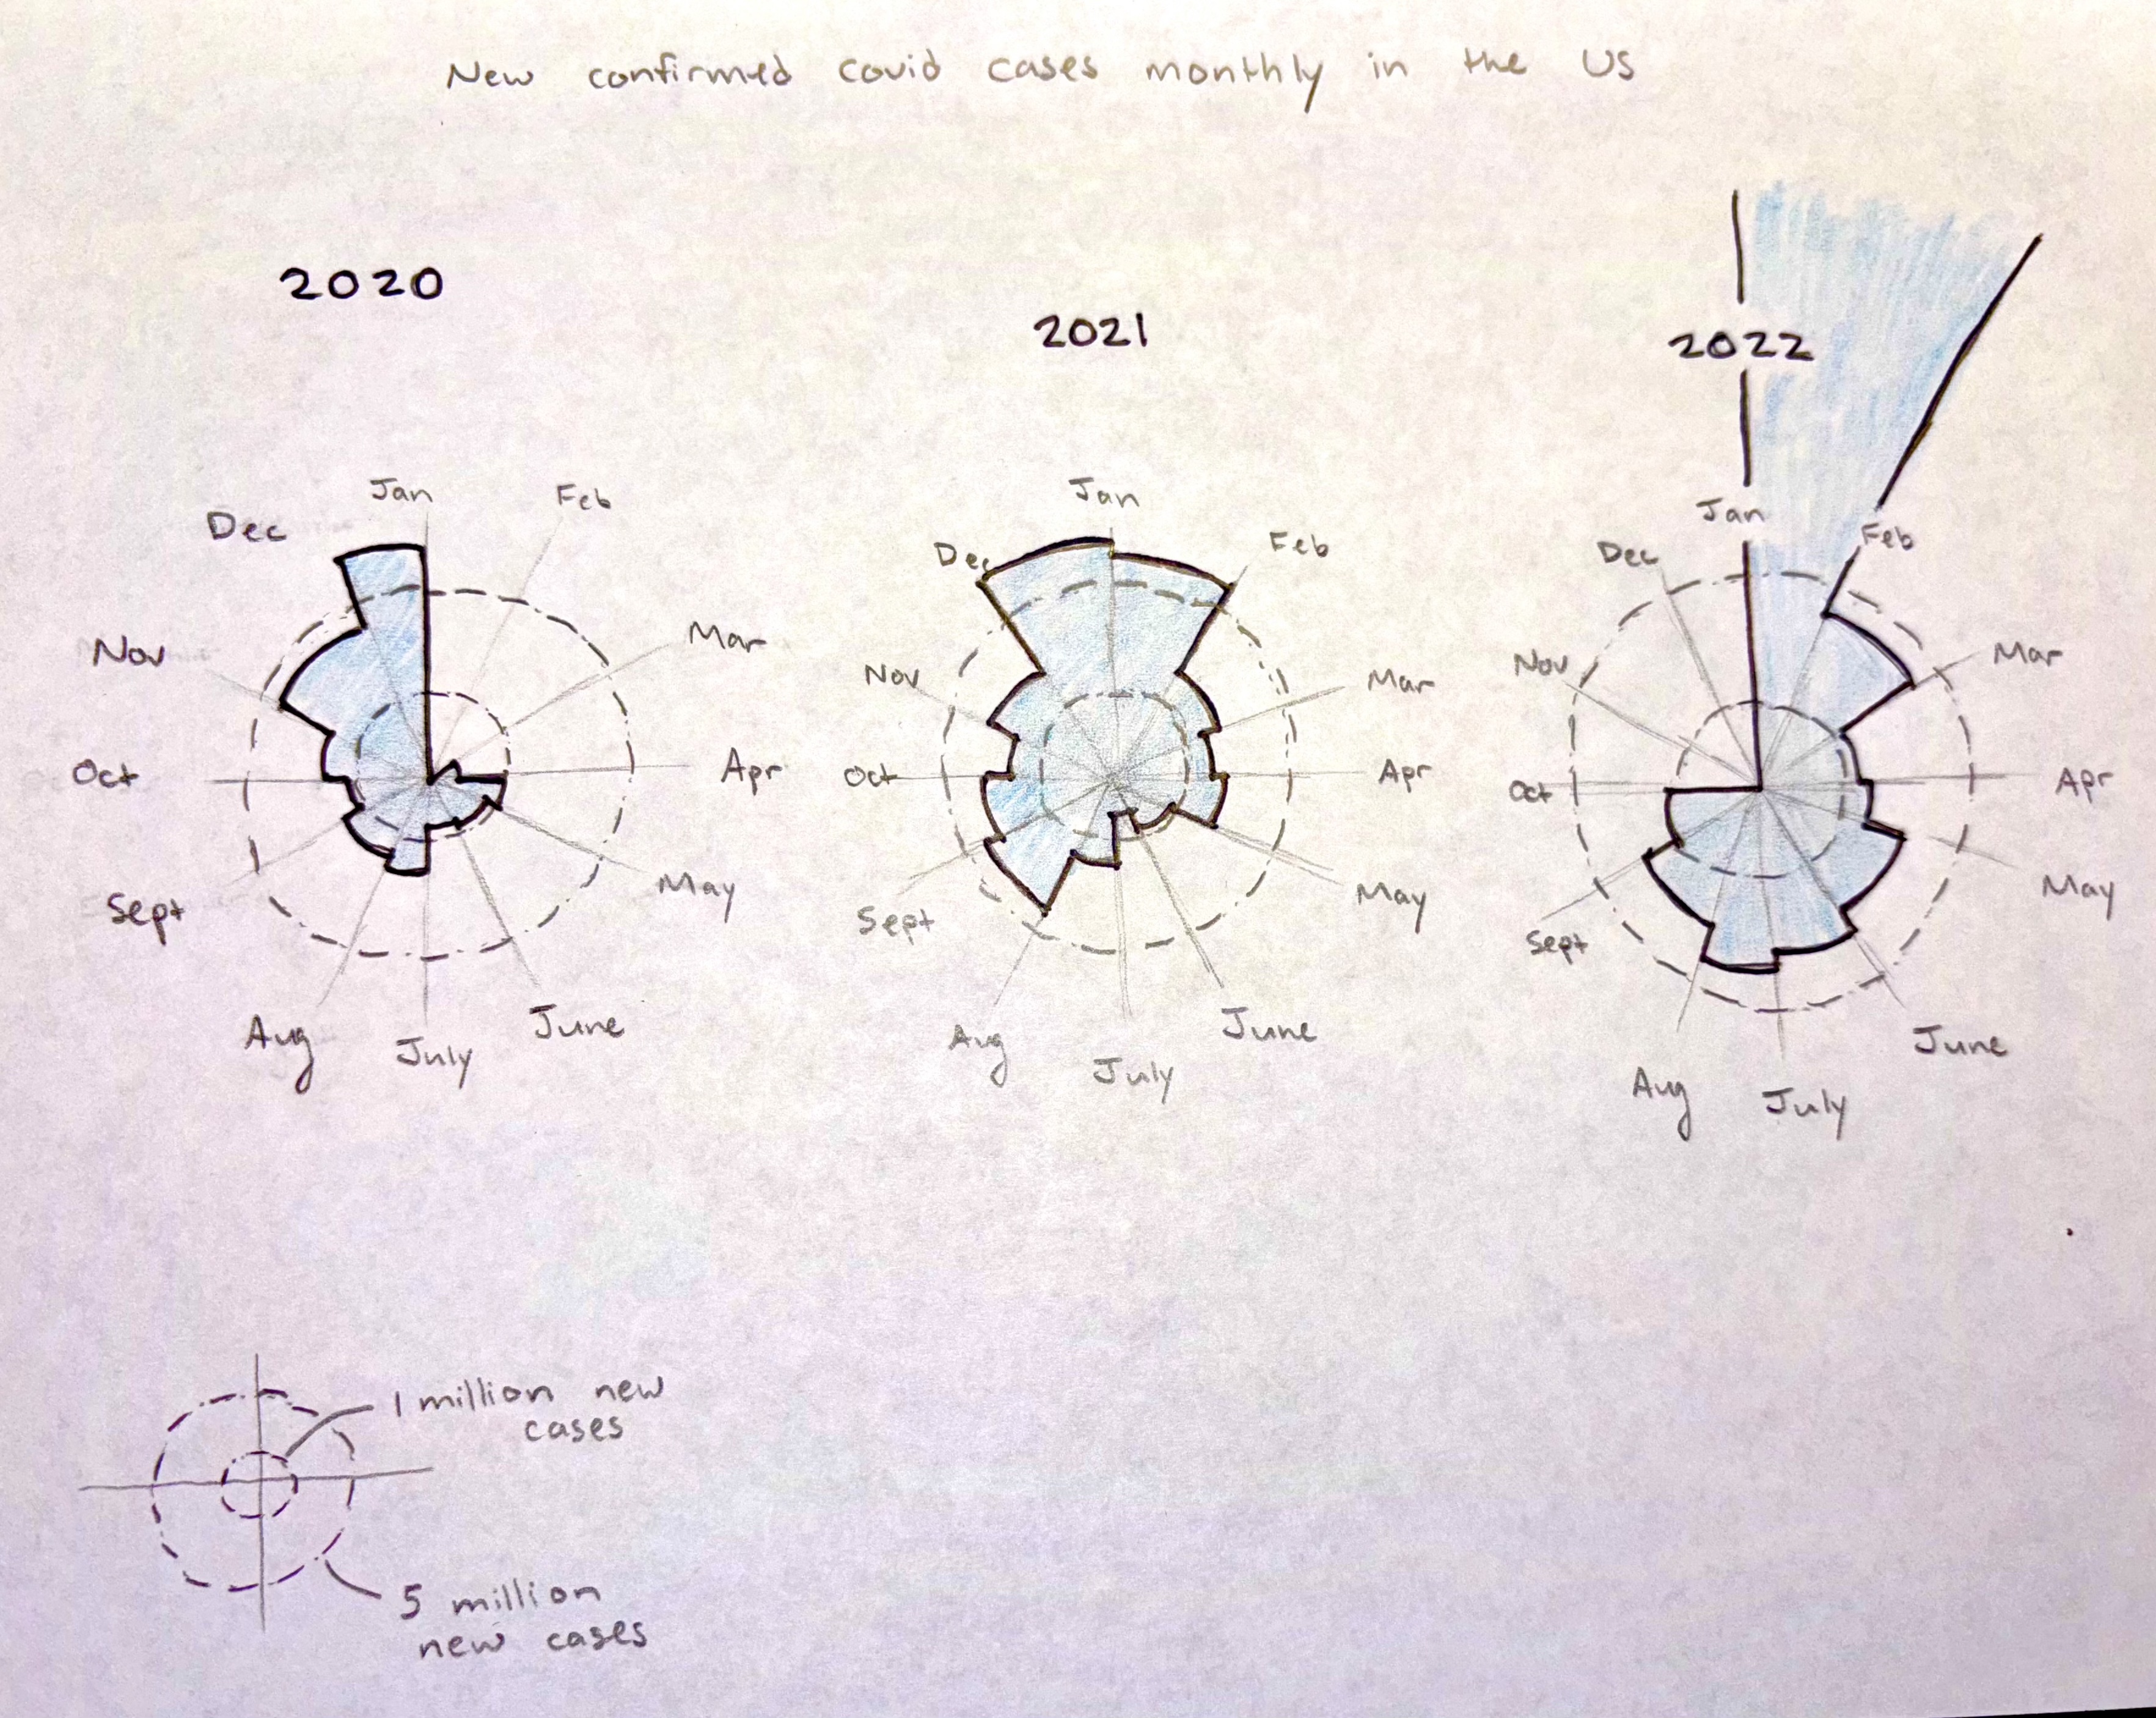 New confirmed covid cases monthly in the US
2020
Jan
Feb
Mar
Apr
May
June
July
Aug
Sept
Oct
Nov
Dec
2021
Jan
Feb
Mar
Apr
May
June
July
Aug
Sept
Oct
Nov
Dec
2022
Jan
Feb
Mar
Apr
May
June
July
Aug
Sept
Oct
Nov
Dec
1 million new
cases
5 million
new cases